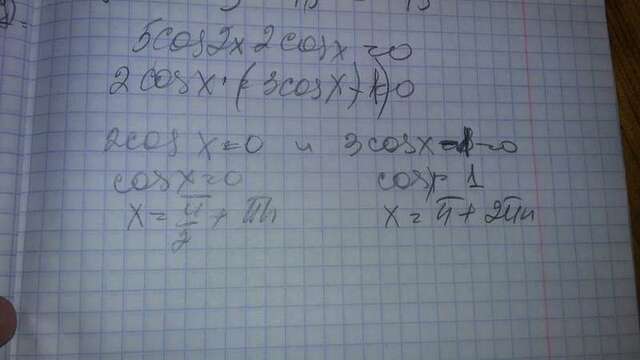 5cos2x 2cosx = 0
2cosx·(-3cosx)-1)=0
2cos x=0 и 3cosx-1=0
cosx=0 cosx= 1
x = π/2 + πn x = π + 2πn